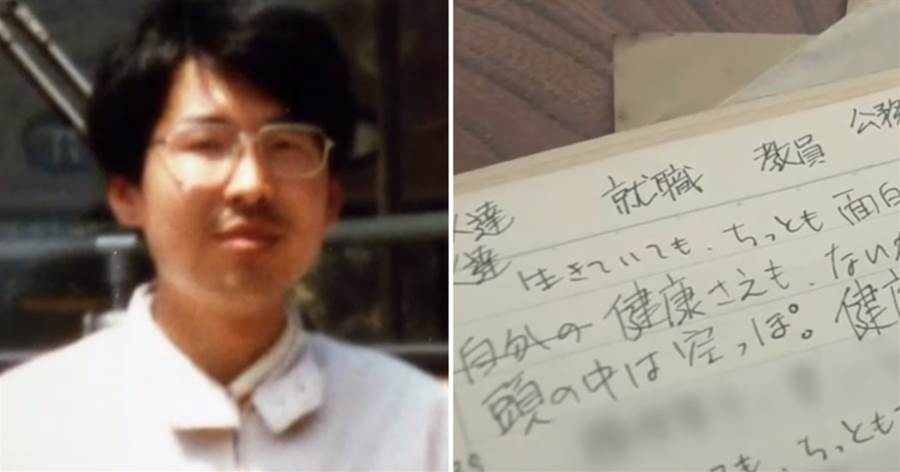 達 就職 教員 公務
達 生きていても、ちっとも面白
自分の健康さえも、ないか
頭の中は空っぽ。健康
ちっとも